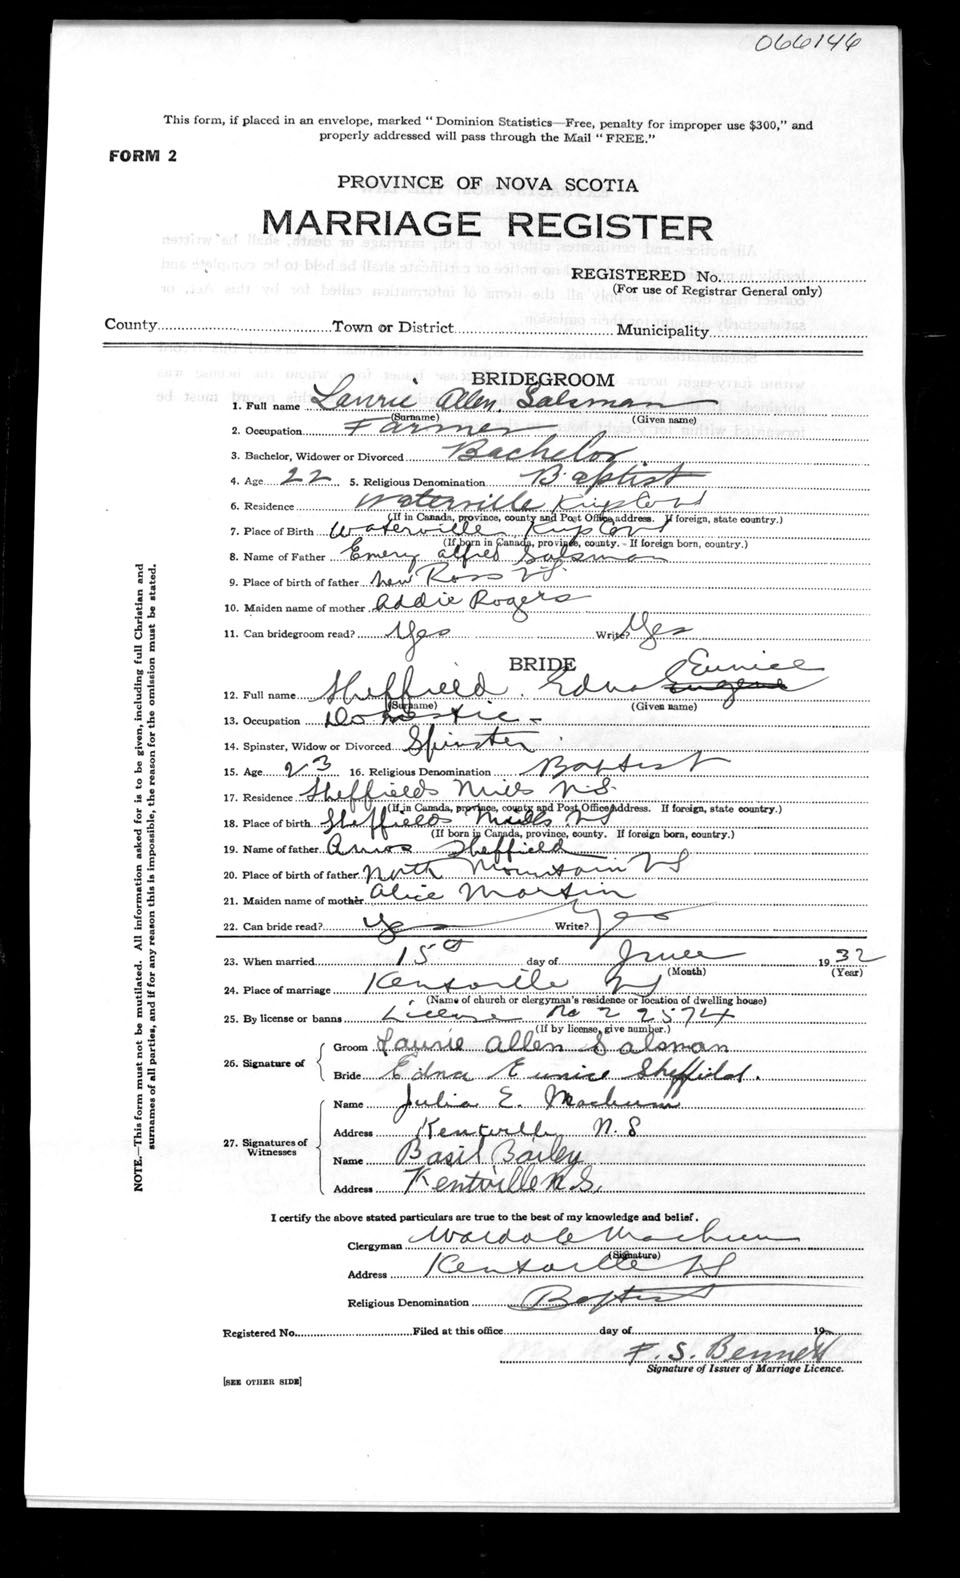 066146
This form, if placed in an envelope, marked "Dominion Statistics—Free, penalty for improper use $300," and
properly addressed will pass through the Mail "FREE."
FORM 2
PROVINCE OF NOVA SCOTIA
MARRIAGE REGISTER
REGISTERED No.
(For use of Registrar General only)
County Town or District Municipality
BRIDEGROOM
1. Full name Laurie Allen Salsman
(Surname) (Given name)
2. Occupation Farmer
3. Bachelor, Widower or Divorced Bachelor
4. Age 22 5. Religious Denomination Baptist
6. Residence Waterville Kings Co
(If in Canada, province, county and Post Office address. If foreign, state country.)
7. Place of Birth Waterville Kings Co
(If born in Canada, province, county. - If foreign born, country.)
8. Name of Father Emery alfred Salsman
9. Place of birth of father New Ross NS
10. Maiden name of mother Addie Rogers
11. Can bridegroom read? Yes Write? Yes
BRIDE
Eunice
12. Full name Sheffield. Edna Eugene
(Surname) (Given name)
13. Occupation Domestic -
14. Spinster, Widow or Divorced Spinster
15. Age 23 16. Religious Denomination Baptist
17. Residence Sheffields Mills N.S.
(If in Canada, province, county and Post Office address. If foreign, state country.)
18. Place of birth Sheffields Mills NS
(If born in Canada, province, county. If foreign born, country.)
19. Name of father Amos Sheffield
20. Place of birth of father North Mountain NS
21. Maiden name of mother Alice Martin
22. Can bride read? Yes Write? Yes
23. When married 15th day of June 1932
(Month) (Year)
24. Place of marriage Kentville NS
(Name of church or clergyman's residence or location of dwelling house)
25. By license or banns License No 22574
(If by license, give number.)
26. Signature of
Groom Laurie Allen Salsman
Bride Edna Eunice Sheffield.
27. Signatures of Witnesses
Name Julia E. Machum
Address Kentville N.S
Name Basil Bailey
Address Kentville N.S.
I certify the above stated particulars are true to the best of my knowledge and belief.
Clergyman Machum
(Signature)
Address Kentville NS
Religious Denomination Baptist
Registered No. Filed at this office day of 19
F. S. Bennett
Signature of Issuer of Marriage Licence.
[SEE OTHER SIDE]
NOTE.—This form must not be mutilated. All information asked for is to be given, including full Christian and
surnames of all parties, and if for any reason this is impossible, the reason for the omission must be stated.